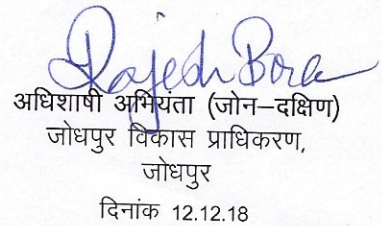 Rajesh Bora
अधिशाषी अभियंता (जोन–दक्षिण)
जोधपुर विकास प्राधिकरण,
जोधपुर
दिनांक 12.12.18